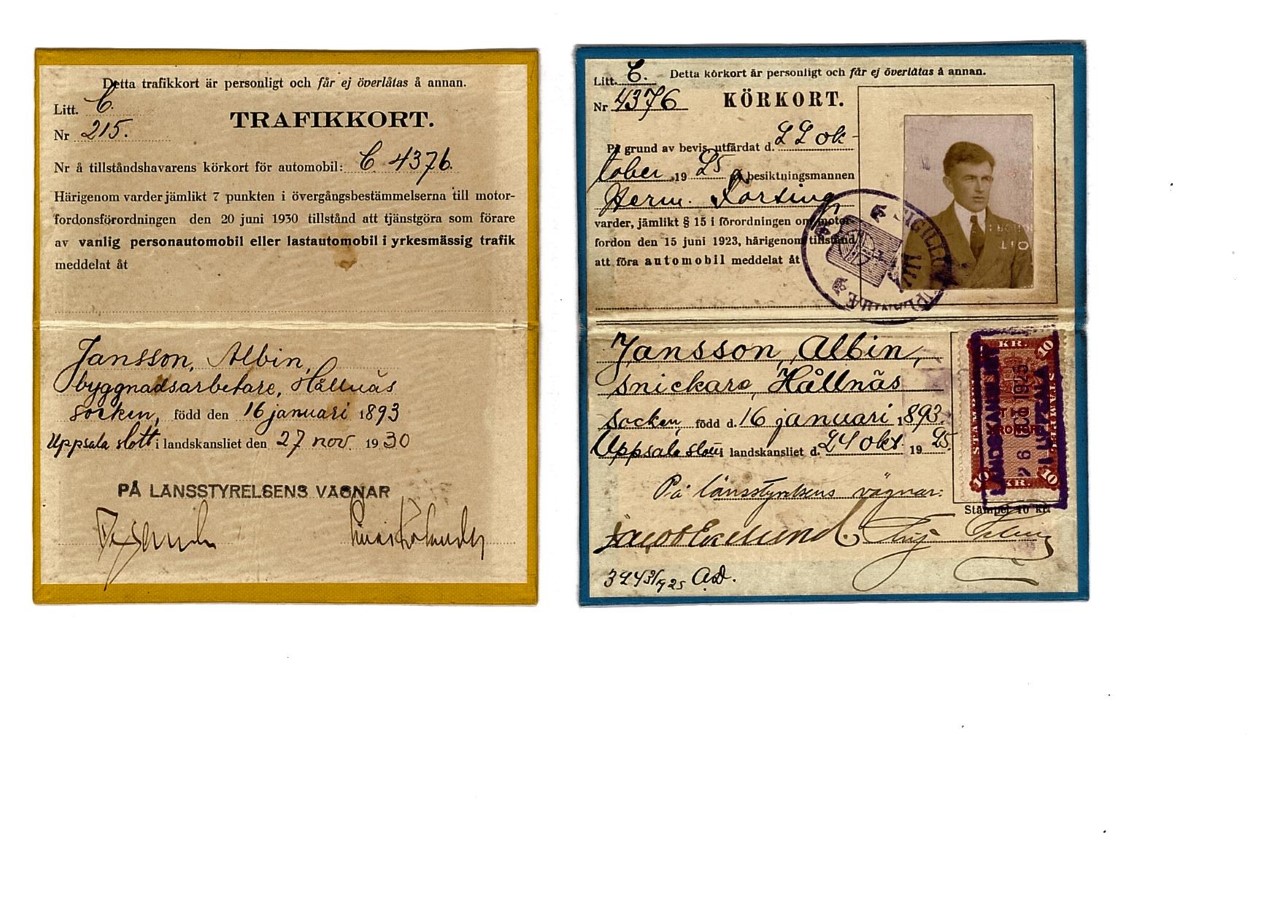 Detta trafikkort är personligt och får ej överlåtas å annan.
Litt. C.
Nr 215.
TRAFIKKORT.
Nr å tillståndshavarens körkort för automobil: C 4376.
Härigenom varder jämlikt 7 punkten i övergångsbestämmelserna till motor-
fordonsförordningen den 20 juni 1930 tillstånd att tjänstgöra som förare
av vanlig personautomobil eller lastautomobil i yrkesmässig trafik
meddelat åt
Jansson, Albin,
byggnadsarbetare, Hållnäs
socken, född den 16 januari 1893
Uppsala slott i landskansliet den 27 nov. 1930
PÅ LÄNSSTYRELSENS VÄGNAR
Litt. C. Detta körkort är personligt och får ej överlåtas å annan.
Nr 4376 KÖRKORT.
På grund av bevis, utfärdat d. 22 ok-
tober 1925 på besiktningsmannen
Herm.
varder, jämlikt § 15 i förordningen om motor-
fordon den 15 juni 1923, härigenom tillstånd
att föra automobil meddelat åt
SIGILLUM
Jansson, Albin,
snickare, Hållnäs
socken, född d. 16 januari 1893.
Uppsala slott i landskansliet d. 24 okt. 1925.
På länsstyrelsens vägnar:
KR. 10
LANDSKANSLIET
I UPPSALA
10 KR. 10
Stämpel 10 kr.